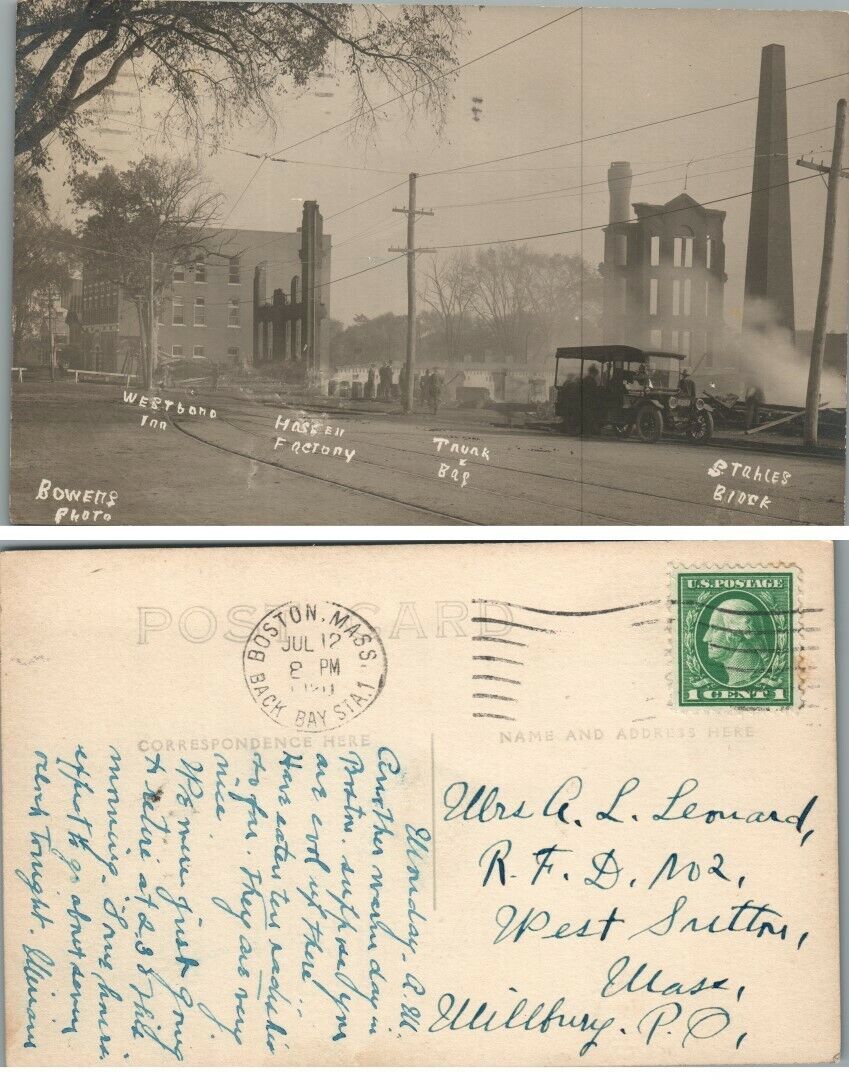 WESTboro
Inn
Hassen
Factory
Trunk
&
Bag
STAbles
Block
Bowens
Photo
POST CARD
BOSTON, MASS.
JUL 12
8 PM
BACK BAY STA. 1
U.S. POSTAGE
1 CENT 1
CORRESPONDENCE HERE
NAME AND ADDRESS HERE
Monday - A.M.
Another warm day in
Boston. suppose you
are cool up there
Have eaten ten radishes
so far. They are very
nice.
We were just going
to retire at 2.30 this
morning. Some hours.
expect to go about seven
oclock tonight. Miriam
Mrs A. L. Leonard,
R. F. D. No2,
West Sutton,
Mass,
Millbury. P.O,